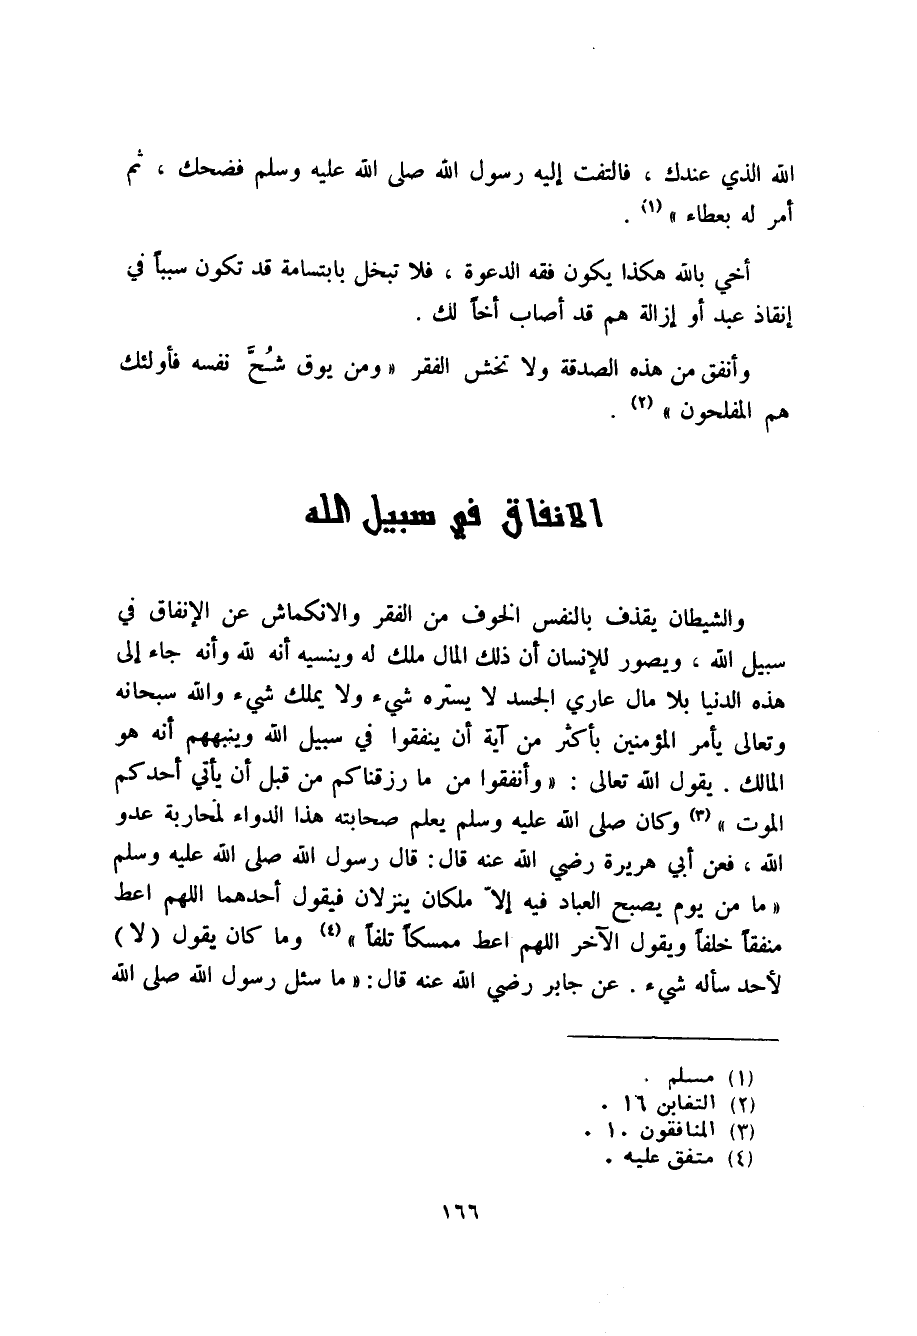 الله الذي عندك ، فالتفت إليه رسول الله صلى الله عليه وسلم فضحك ، ثم
أمر له بعطاء » (١) .
أخي بالله هكذا يكون فقه الدعوة ، فلا تبخل بابتسامة قد تكون سبباً في
إنقاذ عبد أو إزالة هم قد أصاب أخاً لك .
وأنفق من هذه الصدقة ولا تخش الفقر « ومن يوق شُحَّ نفسه فأولئك
هم المفلحون » (٢) .
الانفاق في سبيل الله
والشيطان يقذف بالنفس الخوف من الفقر والانكماش عن الإنفاق في
سبيل الله ، ويصور للإنسان أن ذلك المال ملك له وينسيه أنه لله وأنه جاء إلى
هذه الدنيا بلا مال عاري الجسد لا يستره شيء ولا يملك شيء والله سبحانه
وتعالى يأمر المؤمنين بأكثر من آية أن ينفقوا في سبيل الله وينبههم أنه هو
المالك . يقول الله تعالى : « وأنفقوا من ما رزقناكم من قبل أن يأتي أحدكم
الموت » (٣) وكان صلى الله عليه وسلم يعلم صحابته هذا الدواء لمحاربة عدو
الله ، فعن أبي هريرة رضي الله عنه قال : قال رسول الله صلى الله عليه وسلم
« ما من يوم يصبح العباد فيه إلاّ ملكان ينزلان فيقول أحدهما اللهم اعط
منفقاً خلفاً ويقول الآخر اللهم اعط ممسكاً تلفاً » (٤) وما كان يقول ( لا )
لأحد سأله شيء . عن جابر رضي الله عنه قال : « ما سئل رسول الله صلى الله
(١) مسلم .
(٢) التغابن ١٦ .
(٣) المنافقون ١٠ .
(٤) متفق عليه .
١٦٦